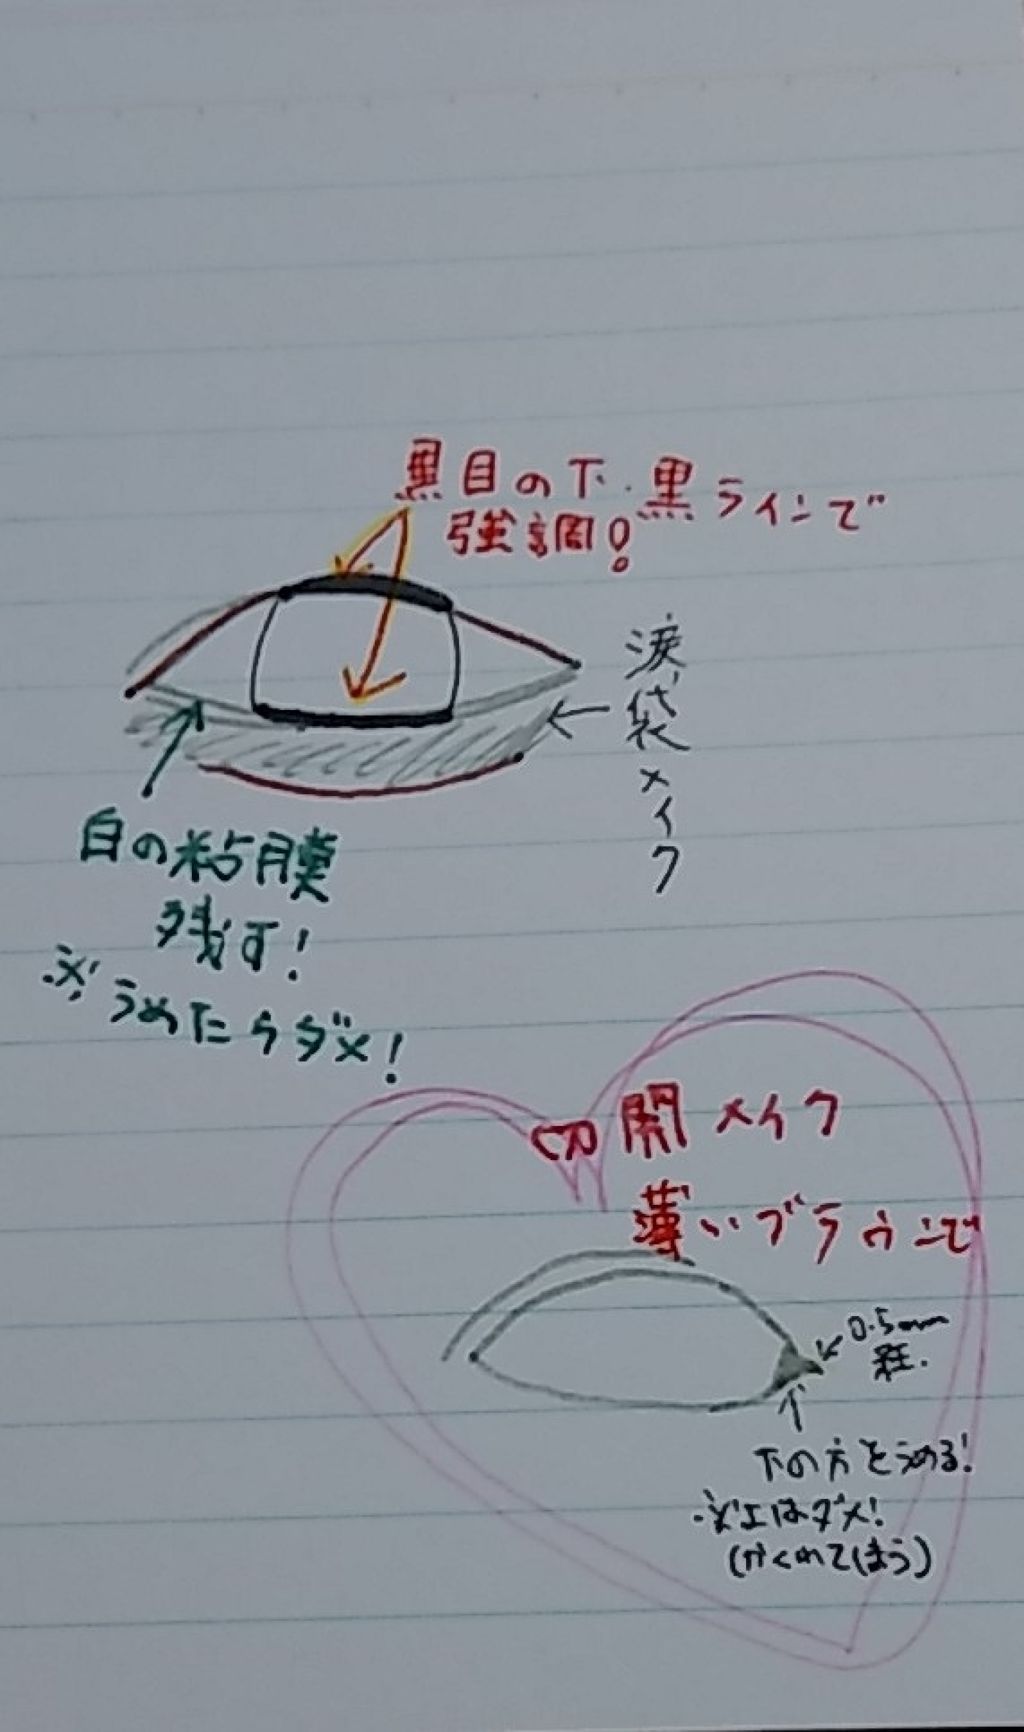 黒目の下・黒ラインで
強調!
涙袋メイク
白の粘膜
残す!
※うめたらダメ!
切開メイク
薄いブラウンで
0.5mm
程.
下の方をうめる!
※上はダメ!